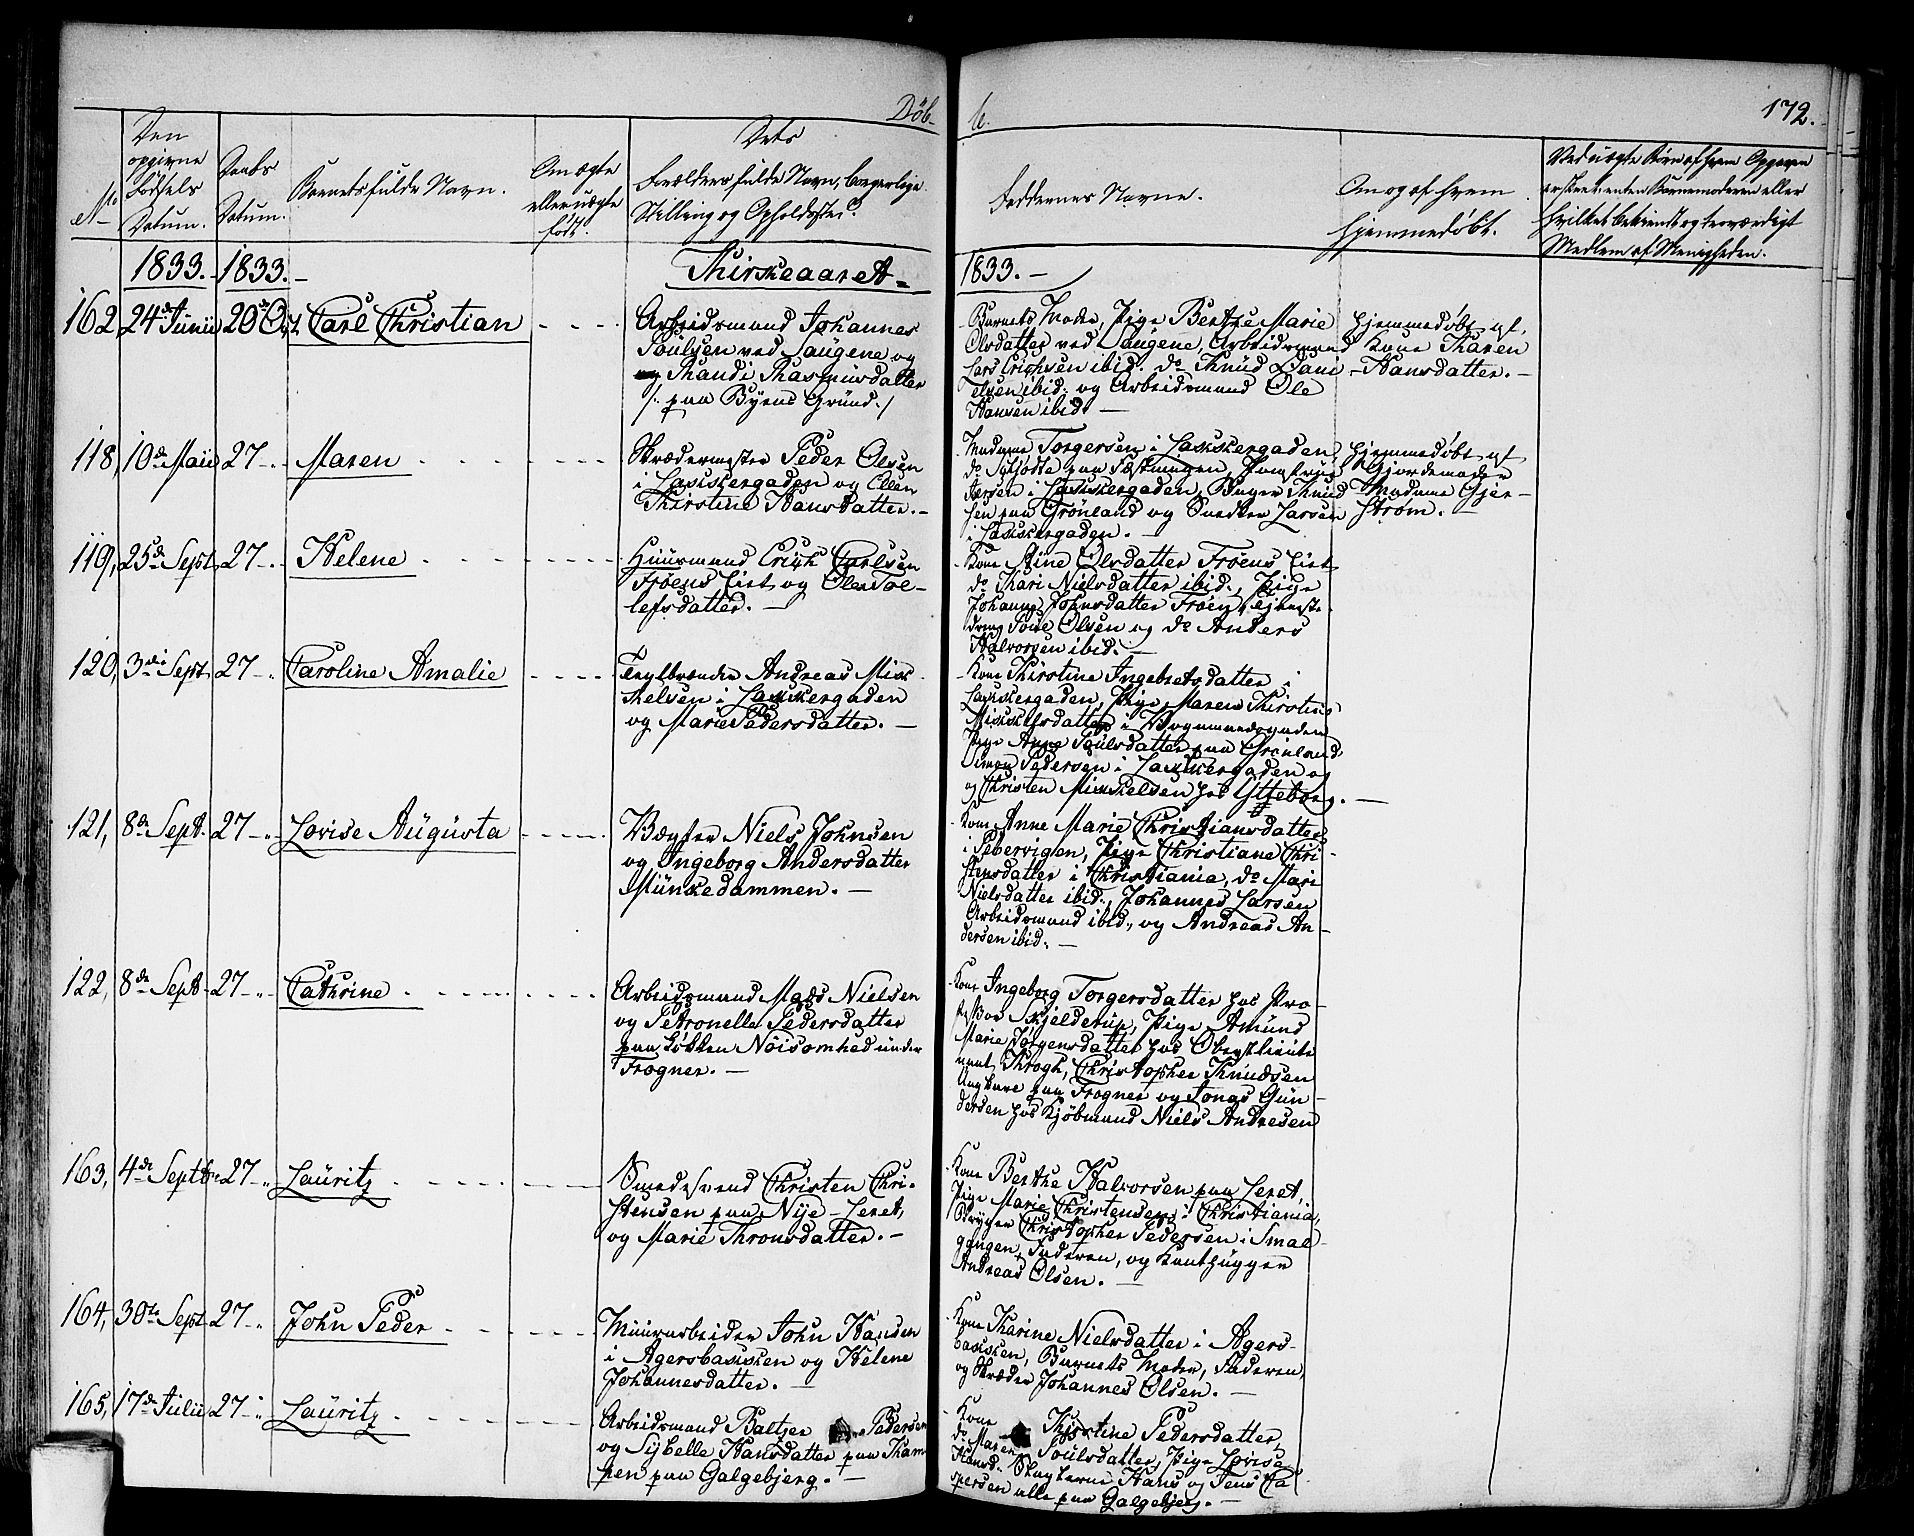 Döb-
te.
172.
No
Den opgivne Födsels Datum.
Daabs Datum.
Barnets fulde Navn.
Om ægte eller uægte född.
Dets Forældres fulde Navn, borgerlige Stilling og Opholdssted.
Faddernes Navne.
Om og af hvem hjemmedöbt.
Ved uægte Börn af hvem Opgaven er skeet, enten Barnemoderen eller hvilket bekiendt og troværdigt Medlem af Menigheden.
1833. 1833. Kirkeaaret 1833.
162, 24de Junii 20de Oct. Carl Christian
Arbeidsmand Johannes
Poulsen ved Saugene og
Randi Rasmusdatter
/: paa Byens Grund :/
Barnets Moder, Pige Berthe Marie
Olsdatter ved Saugene, Arbeidsmand
Lars Erichsen ibid. do Knud Dani-
elsen ibid. og Arbeidsmand Ole
Hansen ibid.
hjemmedöbt af
Kone Karen
Hansdatter.
118, 10de Maii 27 Maren
Skrædermester Peder Olsen
i Lakkergaden og Ellen
Kirstine Hansdatter.
Madame Torgersen i Lakkergaden,
i Lakkergaden, Bager Knud
sen paa Grönland og Snedker Larsen
i Lakkergaden.
hjemmedöbt af
Gjordemoder
Madame Gjer-
ström.
119, 25de Sept. 27 Helene
Huusmand Erich Carlsen
Fröens Eiet og Olea Tol-
lefsdatter.
Kone Stine Olsdatter Fröens Eiet
do Kari Nielsdatter ibid., Pige
Johanne Johnsdatter Fröen,
Poul Olsen og do Anders
Halvorsen ibid.
120, 3die Sept. 27 Caroline Amalie
Teglbrænder Andreas Mik-
kelsen i Lakkergaden
og Marie Pedersdatter.
Kone Kirstine Ingebretsdatter i
Lakkergaden, Pige Maren Kirstine
Mikkelsdatter i Vognmandsgaden
Pige Anne Poulsdatter paa Grönland
Simon Pedersen i Lakkergaden og
og Christen Mikkelsen hos Ytteborg.
121, 8de Sept. 27 Lovise Augusta
Vægter Niels Johnsen
og Ingeborg Andersdatter
Munkedammen.
Kone Anne Marie Christiansdatter
i Pebervigen, Pige Christiane Chri-
stensdatter i Christiania, do Mari
Nielsdatter ibid., Johannes Larsen
Arbeidsmand ibid., og Andreas An-
dersen ibid.
122, 8de Sept. 27 Cathrine
Arbeidsmand Mads Nielsen
og Petronelle Pedersdatter
paa Lökken Nöisomhed under
Frogner.
Kone Ingeborg Torgersdatter hos Pro-
fessor Skjelderup, Pige Amund
Marie Jörgensdatter hos Oberstlieute-
nant Krogh, Christopher Knudsen
Ungkarl paa Frogner og Jonas Gun-
dersen hos Kjöbmand Niels Andresen
163, 4de Septbr 27 Lauritz
Smedesvend Christen Chri-
stensen paa Nye-Leret,
og Marie Thronsdatter.
Kone Berthe Halvorsen paa Leret,
Pige Marie Christensen i Christiania,
Christopher Pedersen i Smal-
gangen, Faderen, og Steenhugger
Andreas Olsen.
164, 30te Sept. 27 John Peder
Muurarbeider John Hansen
i Agersbakken og Helene
Johannesdatter.
Kone Karine Nielsdatter i Agers-
bakken, Barnets Moder, Faderen,
og Skræder Johannes Olsen.
165, 17de Julii 27 Lauritz
Arbeidsmand Baltzer Pedersen
og Sybelle Hansdatter paa Kam-
pen paa Galgebjerg.
Kone Kirstine Pedersdatter,
do Maren Poulsdatter, Pige Lovise
Hansd. Hans og Jens Ca-
spersen alle paa Galgebjerg.